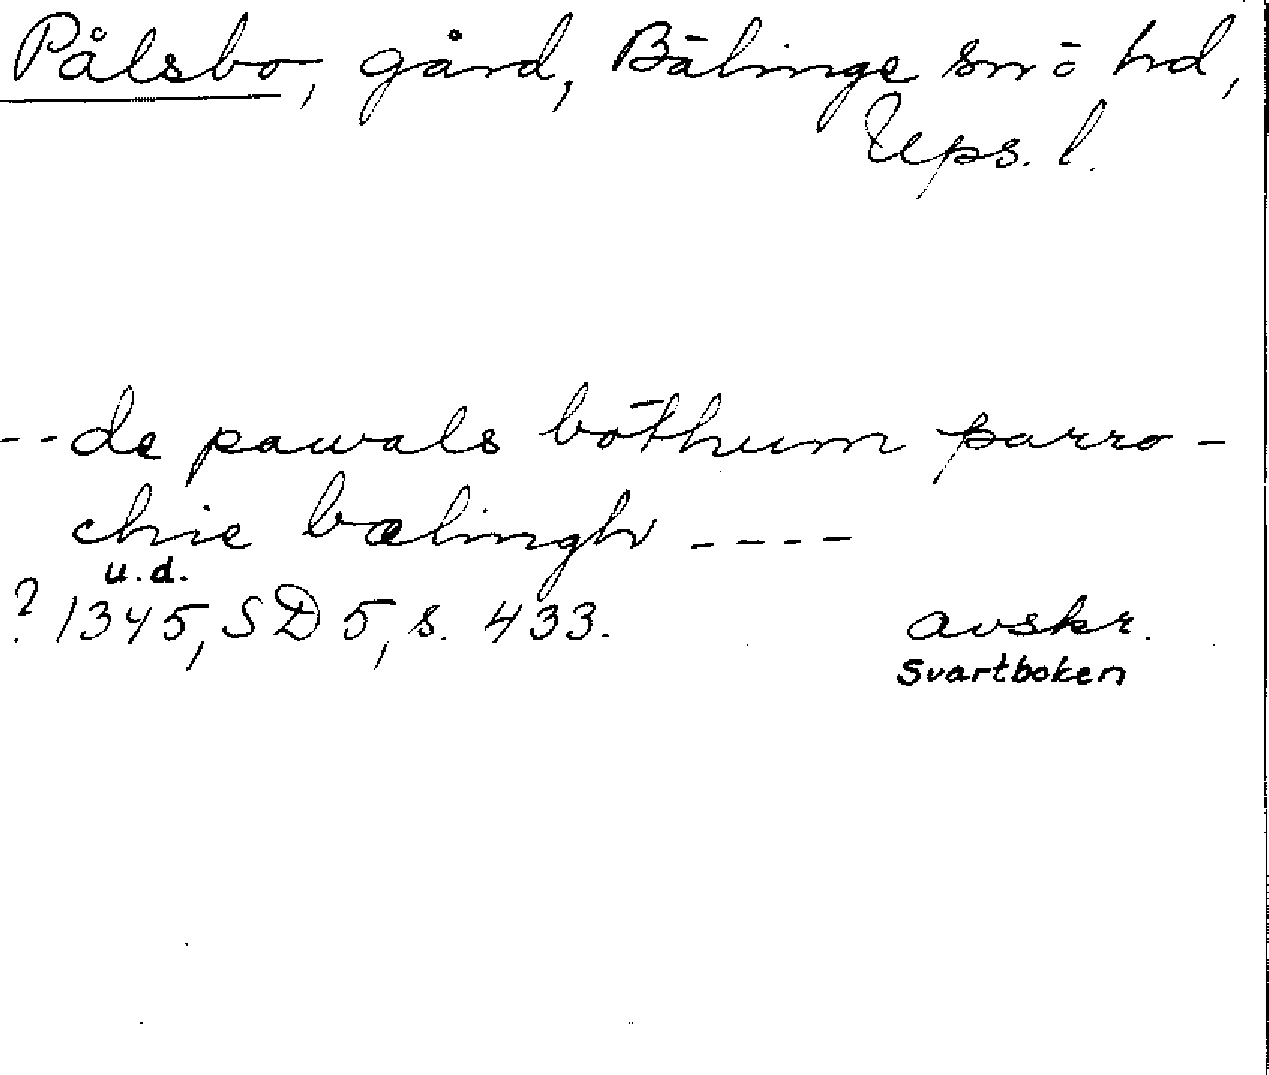 Pålsbo, gård, Bälinge sn ö hd,
Ups. l.
--de pawals böthum parro-
chie bælingh ----
u.d.
? 1345, SD 5, s. 433. avskr.
Svartboken